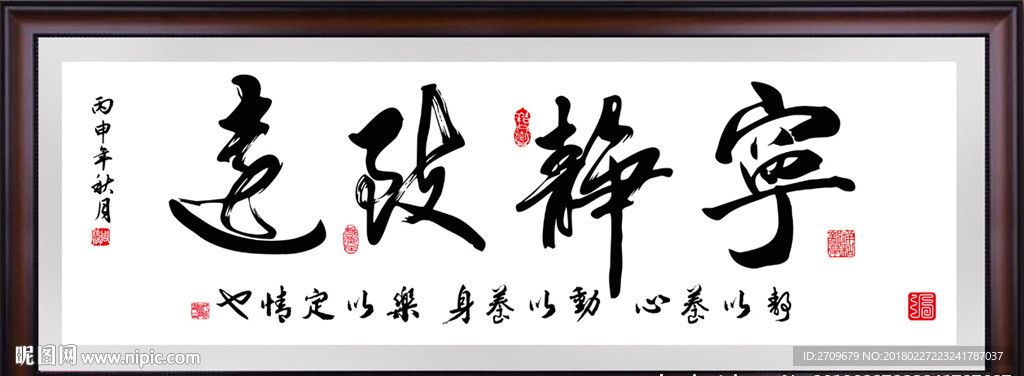 寧靜致遠
靜以養心 動以養身 樂以定情也
丙申年秋月
昵图网 www.nipic.com
ID:2709679 NO:20180227223241787037